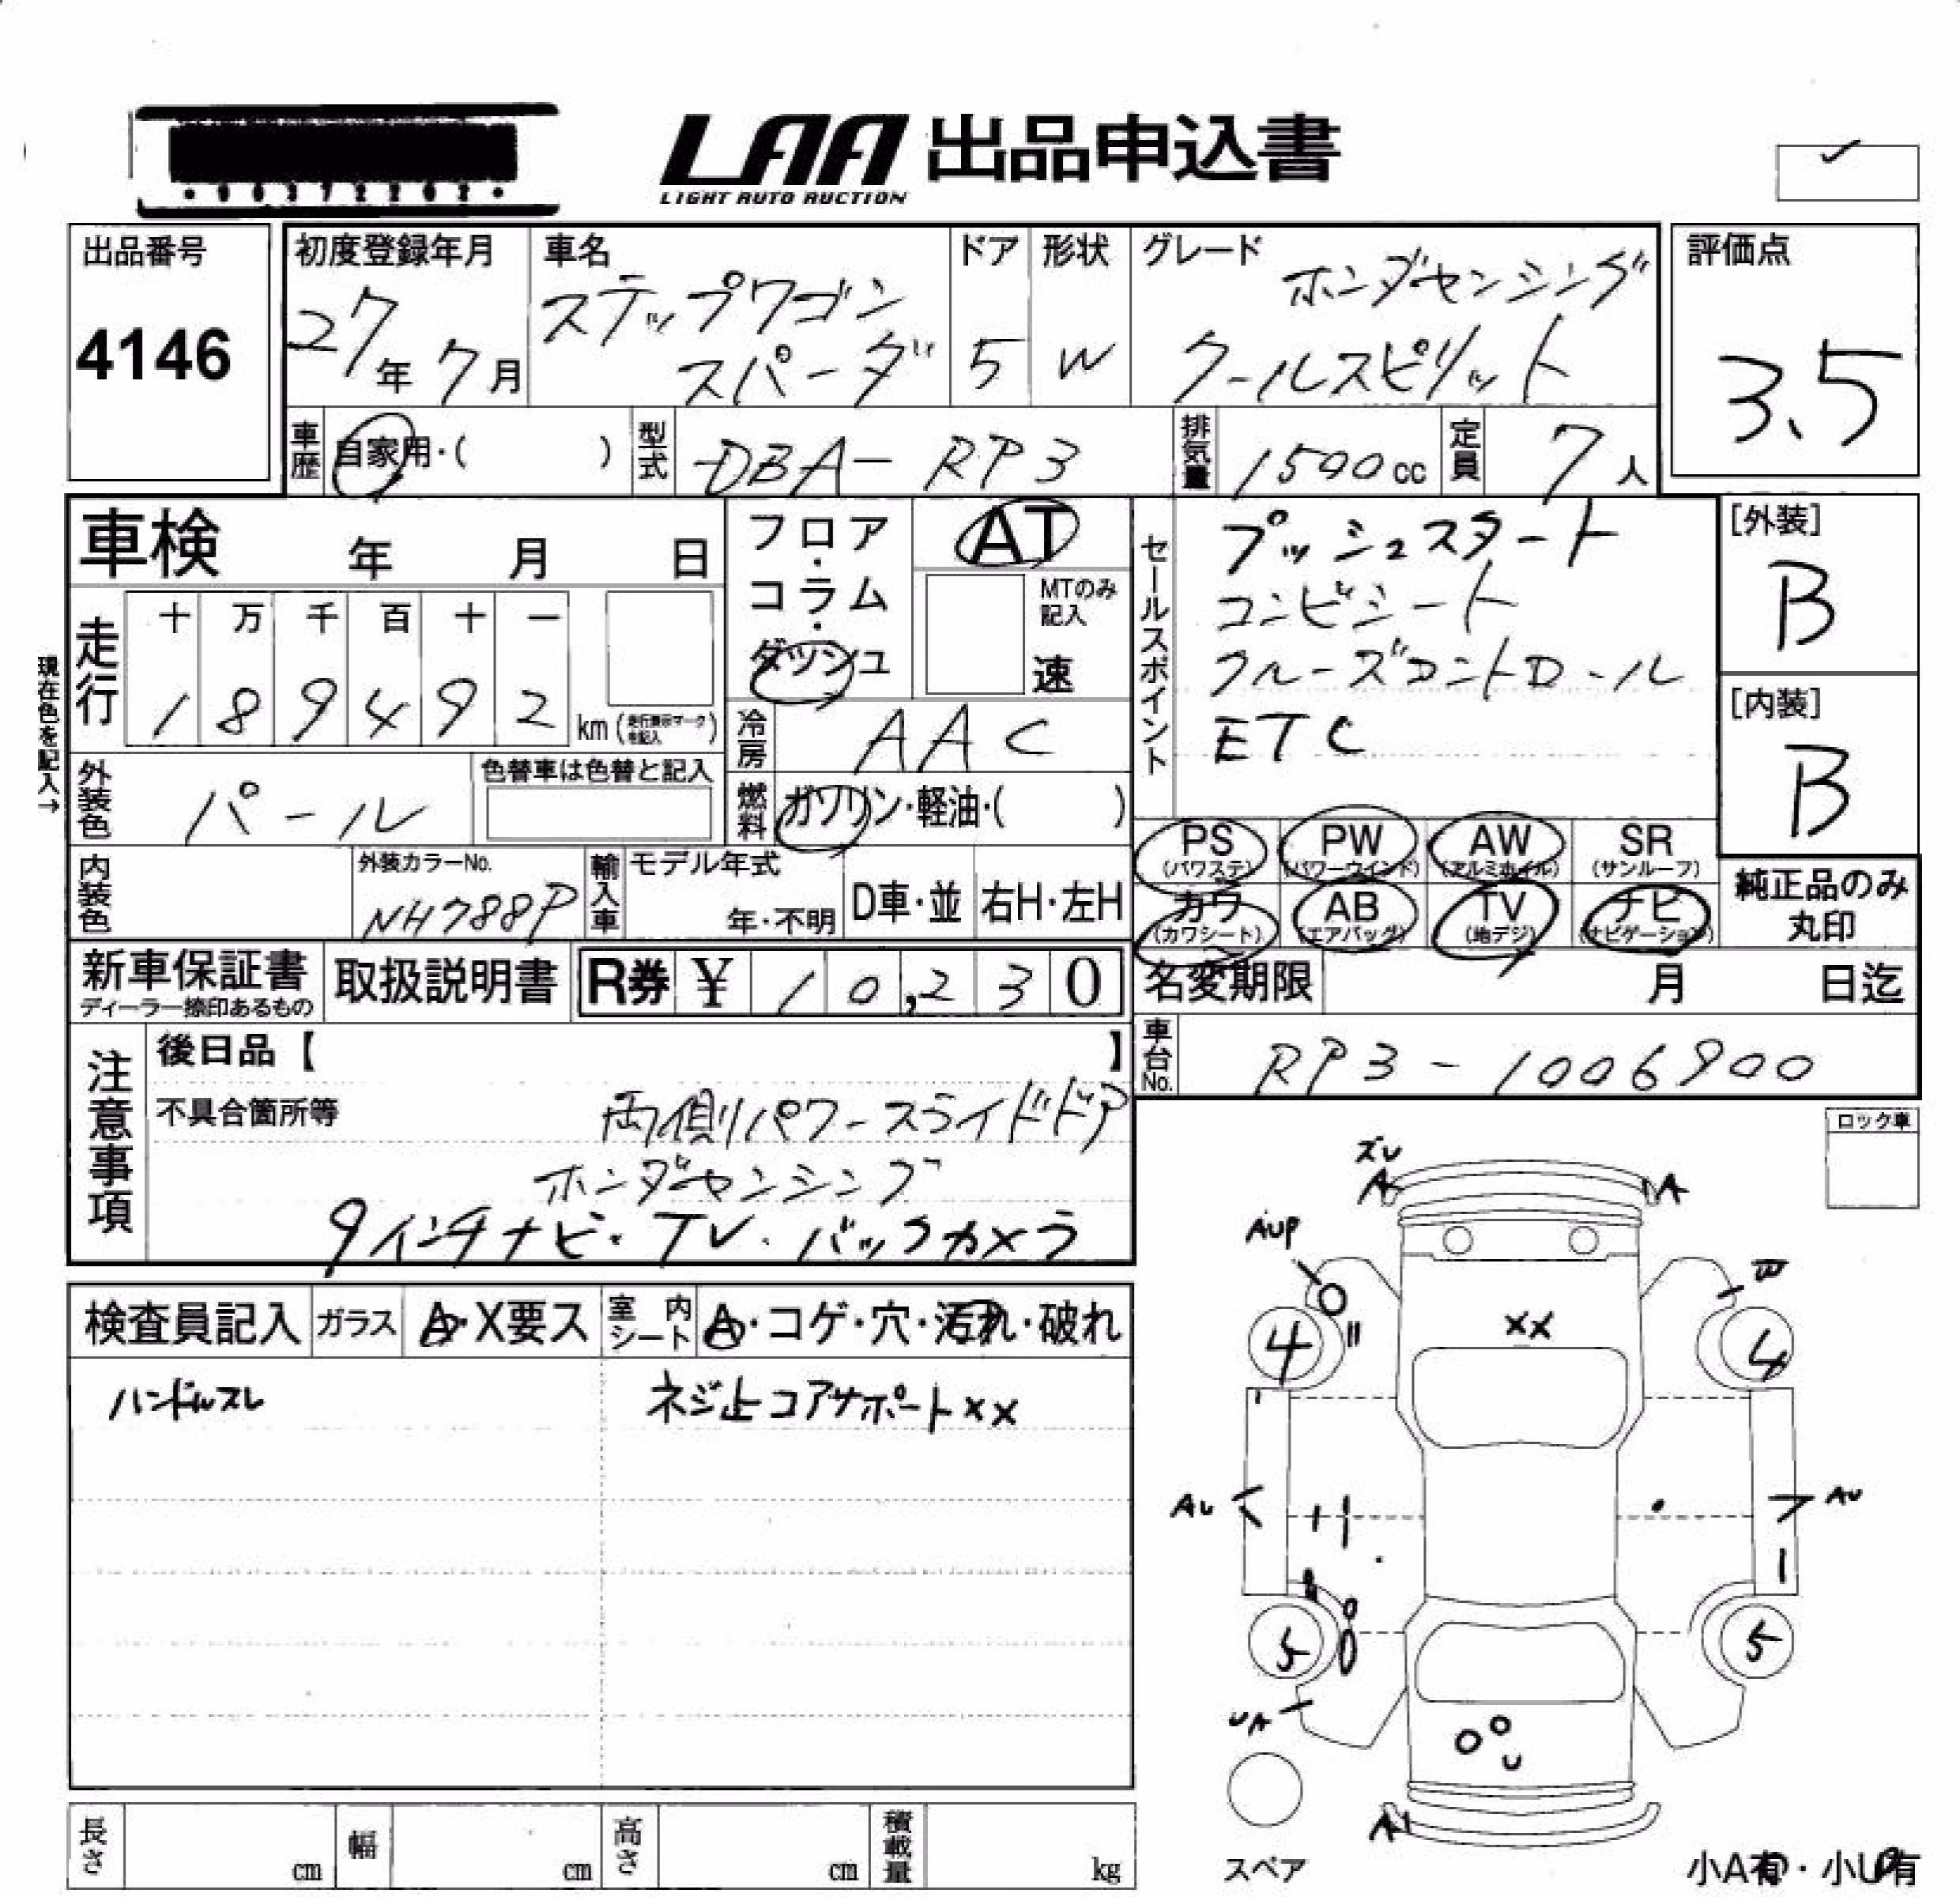 LAA 出品申込書
LIGHT AUTO AUCTION
出品番号
4146
初度登録年月
27年 7月
車名
ステップワゴン
スパーダ
ドア
5
形状
W
グレード
ホンダセンシング
クールスピリット
評価点
3.5
車歴
自家用・( )
型式
DBA- RP3
排気量
1500cc
定員
7人
車検 年 月 日
フロア・コラム・ダッシュ
AT
MTのみ記入
速
セールスポイント
プッシュスタート
コンビシート
クルーズコントロール
ETC
[外装]
B
[内装]
B
現在色を記入→
走行
十 万 千 百 十 一
1 8 9 4 9 2 km (走行表示マークを記入)
冷房
AAC
外装色
パール
色替車は色替と記入
燃料
ガソリン・軽油・( )
PS (パワステ)
PW (パワーウインド)
AW (アルミホイル)
SR (サンルーフ)
カワ (カワシート)
AB (エアバッグ)
TV (地デジ)
ナビ (ナビゲーション)
純正品のみ丸印
内装色
外装カラーNo.
NH788P
輸入車
モデル年式
年・不明
D車・並
右H・左H
新車保証書
ディーラー捺印あるもの
取扱説明書
R券 ¥ 10,230
名変期限 月 日迄
車台No.
RP3-1006900
注意事項
後日品【 】
不具合箇所等
両側パワースライドドア
ホンダセンシング
9インチナビ・TV・バックカメラ
ロック車
検査員記入
ガラス
A・X要ス
室内シート
A・コゲ・穴・汚れ・破れ
ハンドルスレ
ネジ止コアサポートxx
ズレ
A
A
AUP
W
xx
4
4
AU
AU
5
5
UA
U
A1
スペア
小A有・小U有
長さ cm
幅 cm
高さ cm
積載量 kg